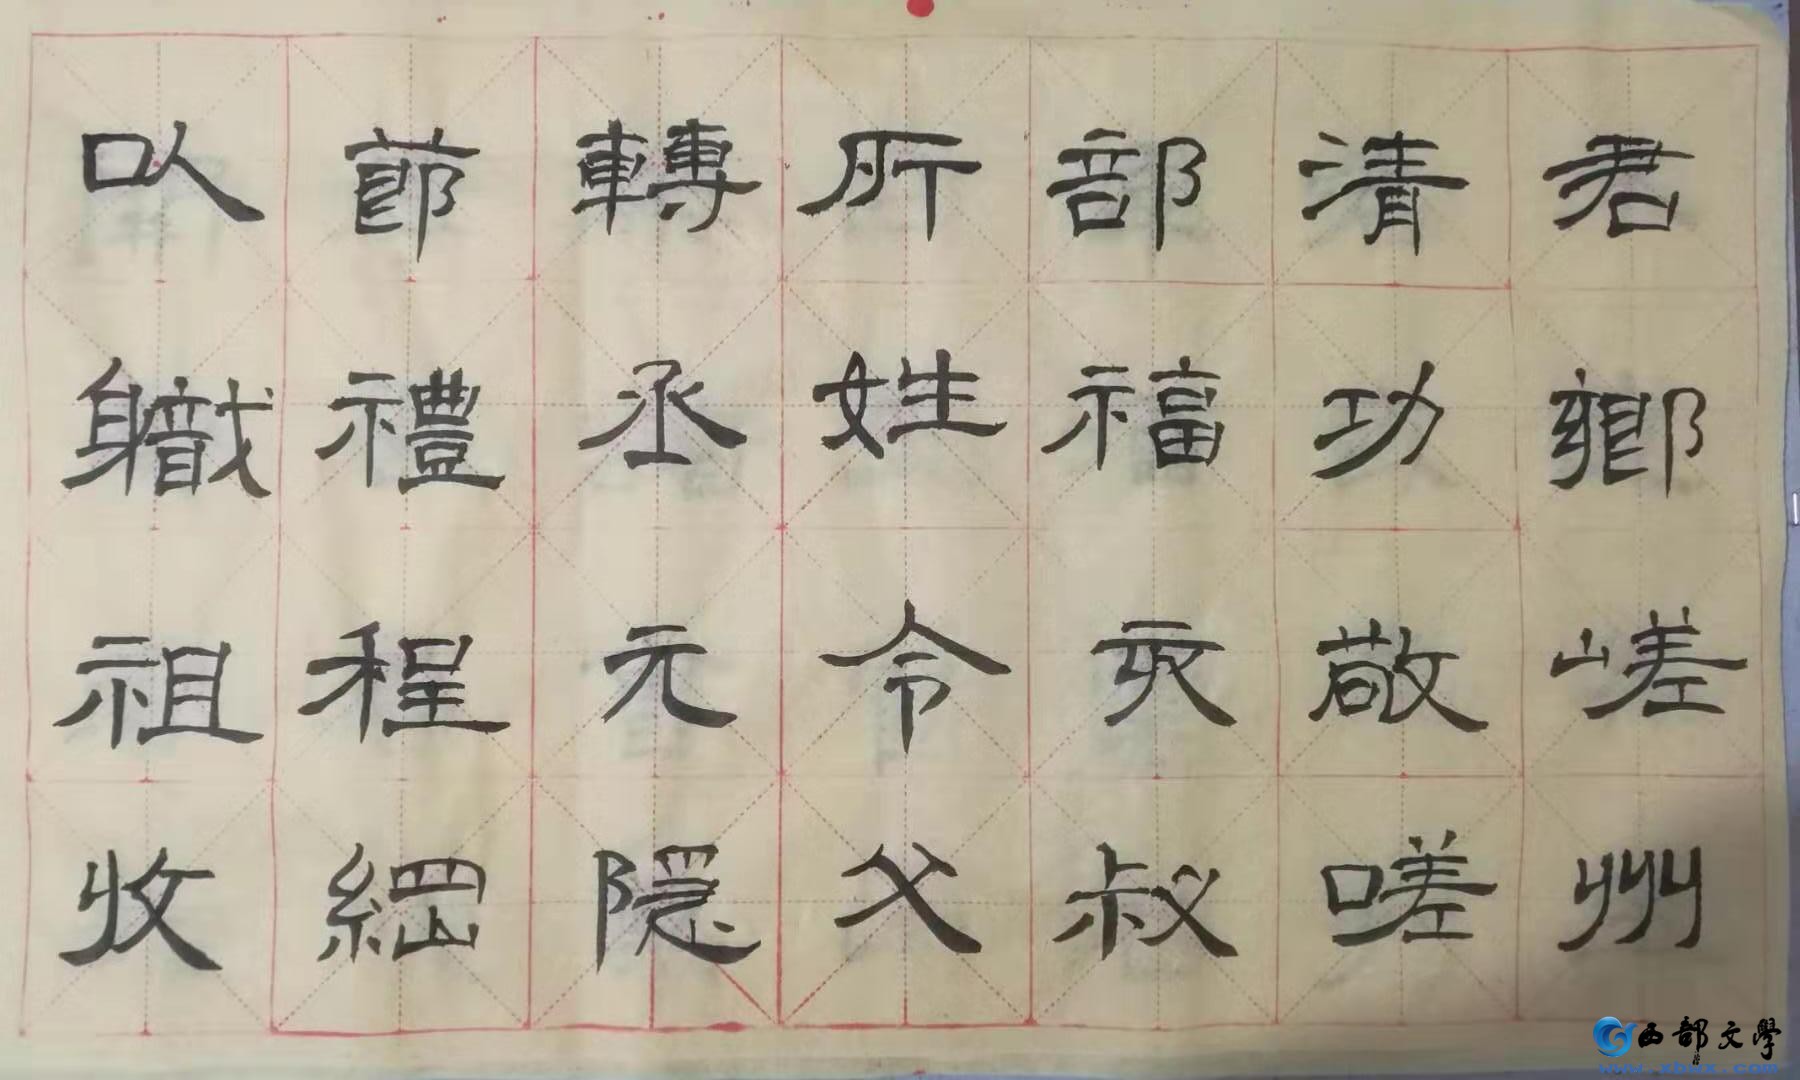 君鄉嵯州
清功敬嗟
部福亥叔
所姓令父
轉丞元隐
節禮程綱
以職祖收
西部文學
www.xbwx.com